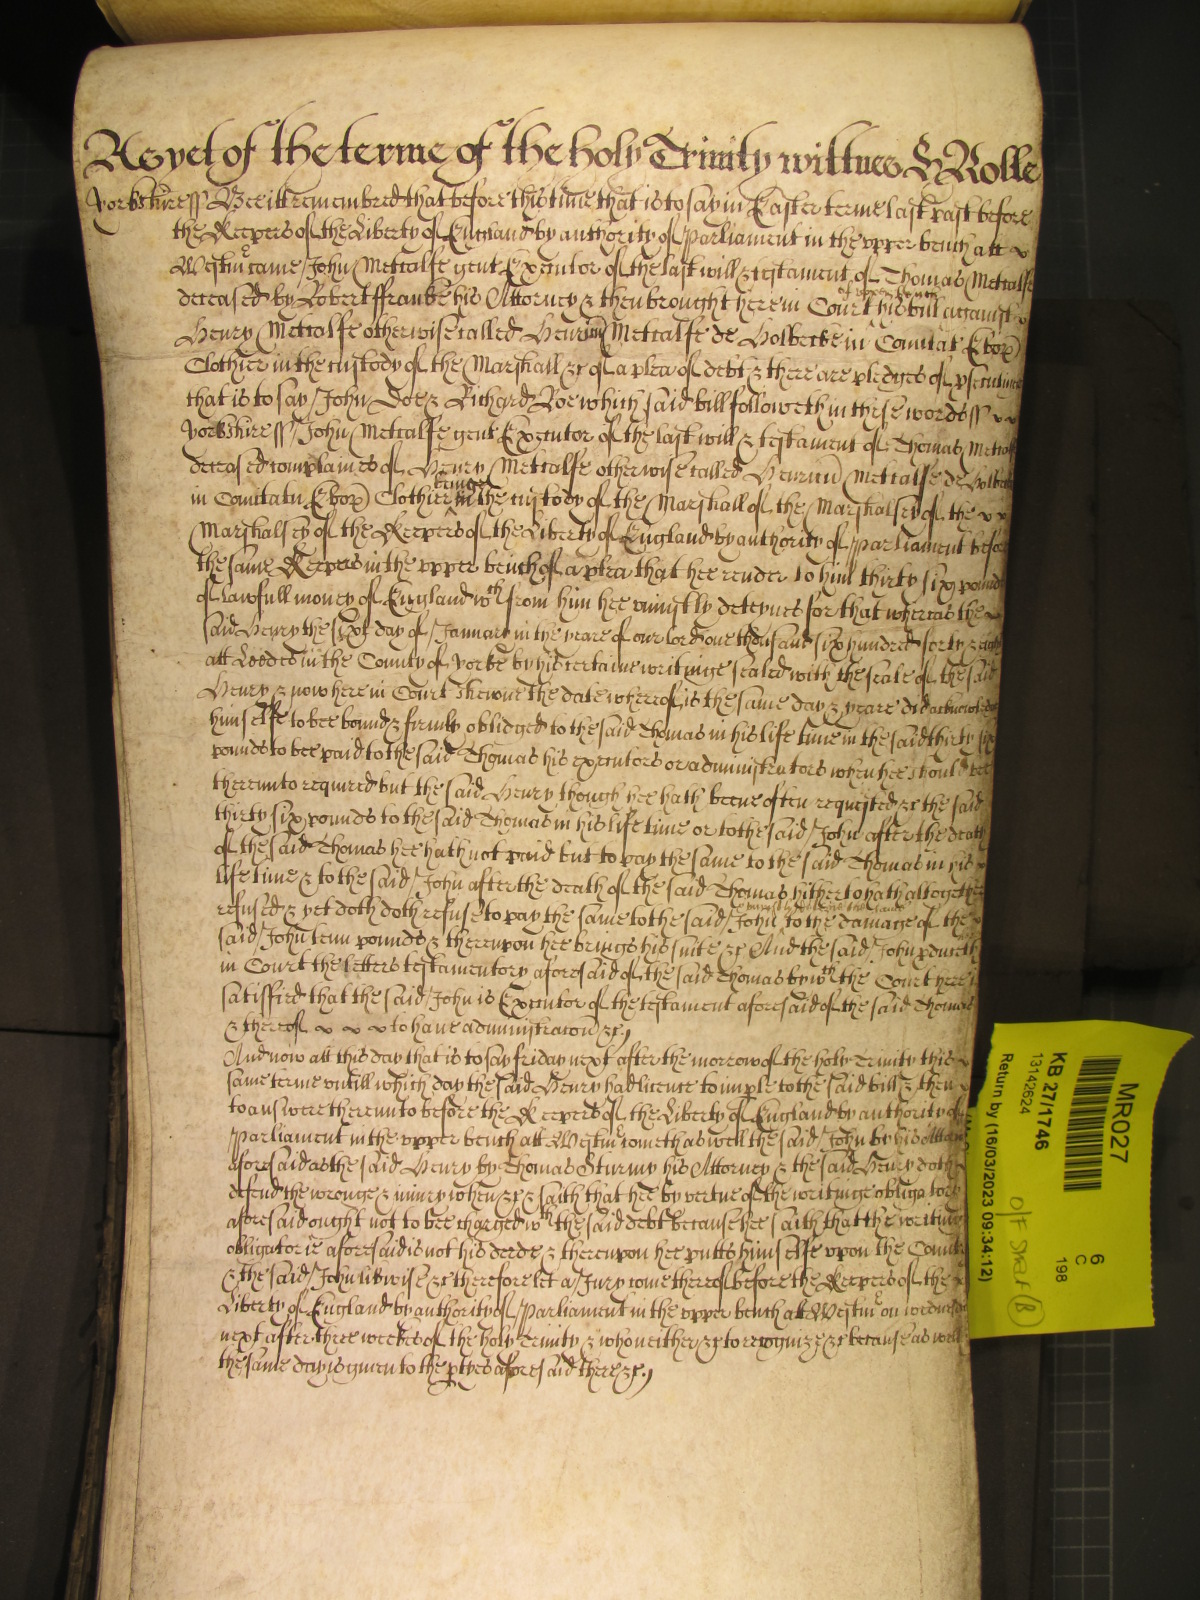 As yet of the terme of the holy Trinity wittnes H Rolle
Yorkshire ss Bee it remembred that before this time that is to say in Easter terme last past before
the Keepers of the Liberty of England by authority of Parliament in the upper bench att
Westm came John Metcalfe gent Executor of the last will & testament of Thomas Metcalfe
deceased by Robert ffranke his Attorney & then brought here in Court his bill against
Henry Metcalfe otherwise called Henricu Metcalfe de Holbecke in Comitat Ebor
Clothier in the custody of the Marshall &c of a plea of debt & there are pledges of psecuting
that is to say John Doe & Richard Roe which said bill followeth in these words ss
Yorkshire ss John Metcalfe gent Executor of the last will & testament of Thomas Metcalfe
deceased complaines of Henry Metcalfe otherwise called Henricu Metcalfe de Holbecke
in Comitatu Ebor Clothier beinge in the custody of the Marshall of the Marshalsey of the
Marshalsey of the Keepers of the Liberty of England by authority of Parliament before
the same Keepers in the upper bench of a plea that hee render to him thirty six pounds
of lawfull money of England wth from him hee uniustly deteynes for that whereas the
said Henry the sixt day of January in the yeare of our lord one thousand six hundred forty & eight
att Leedes in the County of Yorke by his certaine writinge sealed with the seale of the said
Henry & now here in Court shewne the date whereof is the same day & yeare did acknowledge
himselfe to bee bound & firmly obliedged to the said Thomas in his life time in the said thirty six
pounds to bee paid to the said Thomas his executors or administrators when hee should bee
thereunto required but the said Henry though hee hath beene often requested &c the said
thirty six pounds to the said Thomas in his life time or to the said John after the death
of the said Thomas hee hath not paid but to pay the same to the said Thomas in his
life time & to the said John after the death of the said Thomas hitherto hath altogether
refused & yet doth doth refuse to pay the same to the said John to the damage of the
said John tenn pounds & thereupon hee brings his suite &c And the said John pduceth
in Court the letters testamentory aforesaid of the said Thomas by wth the Court here is
satisfied that the said John is Executor of the testament aforesaid of the said Thomas
& thereof to have administracon &c
And now att this day that is to say friday next after the morrow of the holy Trinity this
same terme untill which day the said Henry had licence to imple to the said bill & then
to answere thereunto before the Keepers of the Liberty of England by authority of
Parliament in the upper bench att Westm cometh as well the said John by his Attorney
aforesaid as the said Henry by Thomas Sturmy his Attorney & the said Henry doth
defend the wronge & iniury when &c & saith that hee by vertue of the writinge obligatory
aforesaid ought not to bee charged wth the said debt because hee saith that the writing
obligatorie aforesaid is not his deede & thereupon hee putts himselfe upon the Country
& the said John likwise &c therefore let a Jury come thereof before the Keepers of the
Liberty of England by authority of Parliament in the upper bench att Westm on wednesday
next after three weekes of the holy Trinity & who neither &c to recogniz &c because as well
the same day is given to the ptyes aforesaid there &c
MR027
KB 27/1746
13142624
Return by (16/03/2023 09:34:12)
6
C
198